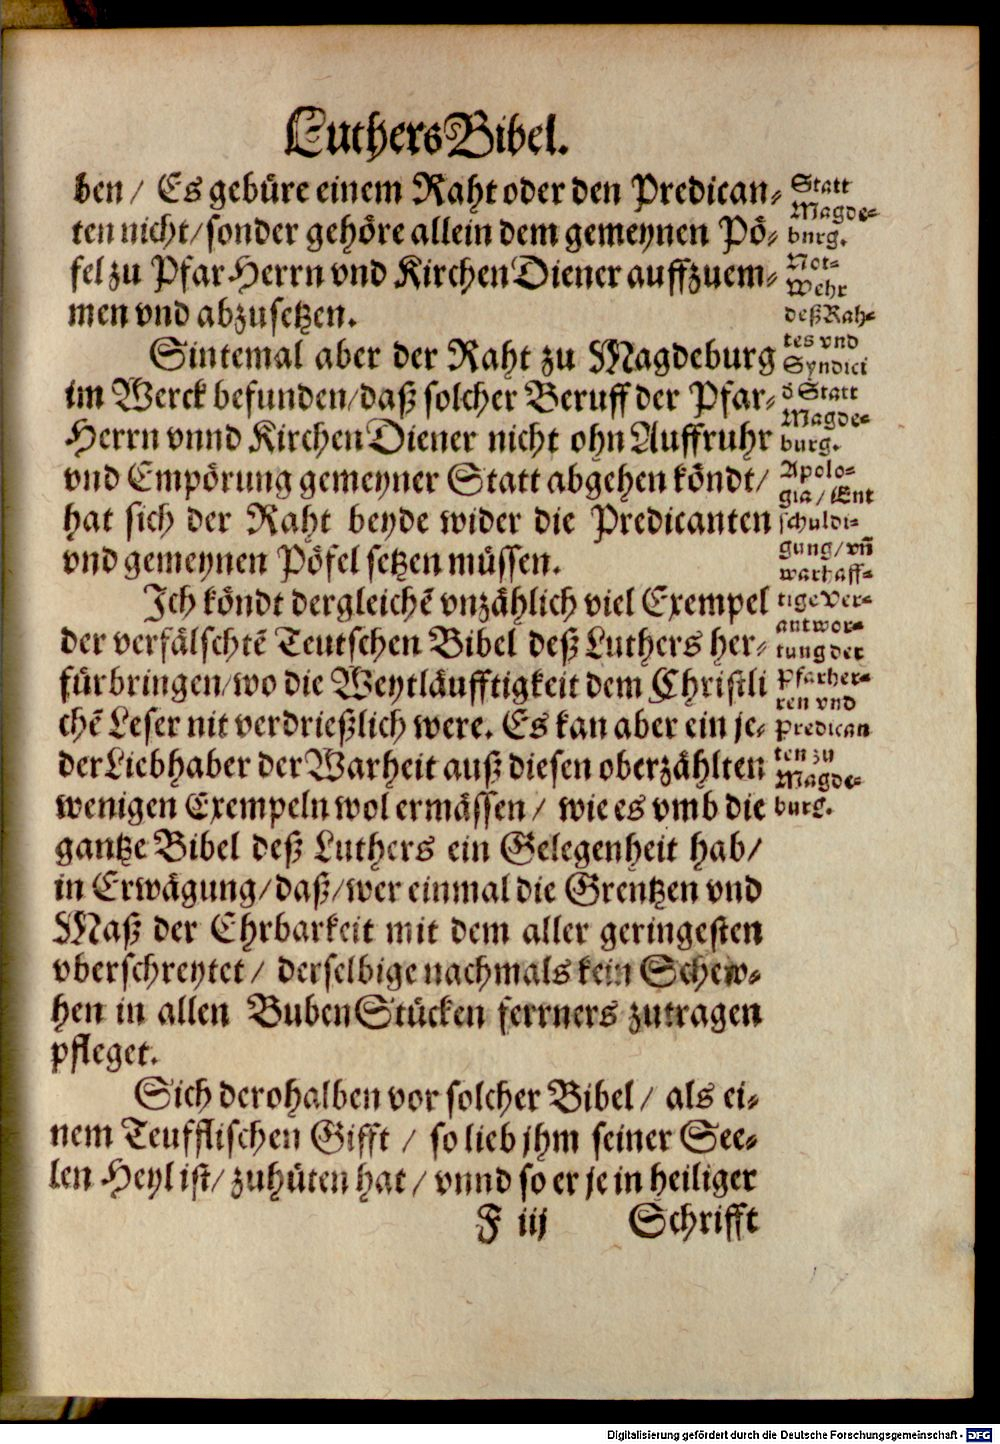 Luthers Bibel.
ben / Es gebüre einem Raht oder den Predican-
ten nicht / sonder gehöre allein dem gemeynen Pö-
fel zu Pfar Herrn vnd Kirchen Diener auffzuem-
men vnd abzusetzen.
Sintemal aber der Raht zu Magdeburg
im Werck befunden / daß solcher Beruff der Pfar-
Herrn vnnd Kirchen Diener nicht ohn Auffruhr
vnd Empörung gemeyner Statt abgehen köndt /
hat sich der Raht beyde wider die Predicanten
vnd gemeynen Pöfel setzen müssen.
Ich köndt dergleichẽ vnzählich viel Exempel
der verfälschtẽ Teutschen Bibel deß Luthers her-
fürbringen / wo die Weytläufftigkeit dem Christli
chẽ Leser nit verdrießlich were. Es kan aber ein je-
der Liebhaber der Warheit auß diesen oberzählten
wenigen Exempeln wol ermässen / wie es vmb die
gantze Bibel deß Luthers ein Gelegenheit hab /
in Erwägung / daß / wer einmal die Grentzen vnd
Maß der Ehrbarkeit mit dem aller geringesten
vberschreytet / derselbige nachmals kein Schew-
hen in allen Buben Stücken ferrners zutragen
pfleget.
Sich derohalben vor solcher Bibel / als ei-
nem Teufflischen Gifft / so lieb jhm seiner See-
len Heyl ist / zuhüten hat / vnnd so er je in heiliger
F iij Schrifft
Statt
Magde-
burg.
Not-
Wehr
deß Rah-
tes vnd
Syndici
d̕ Statt
Magde-
burg.
Apolo-
gia / Ent
schuldi-
gung / vñ
warhaff-
tige Ver-
antwor-
tung der
Pfarher-
ren vnd
Predican
ten zu
Magde-
burg.
Digitalisierung gefördert durch die Deutsche Forschungsgemeinschaft - DFG